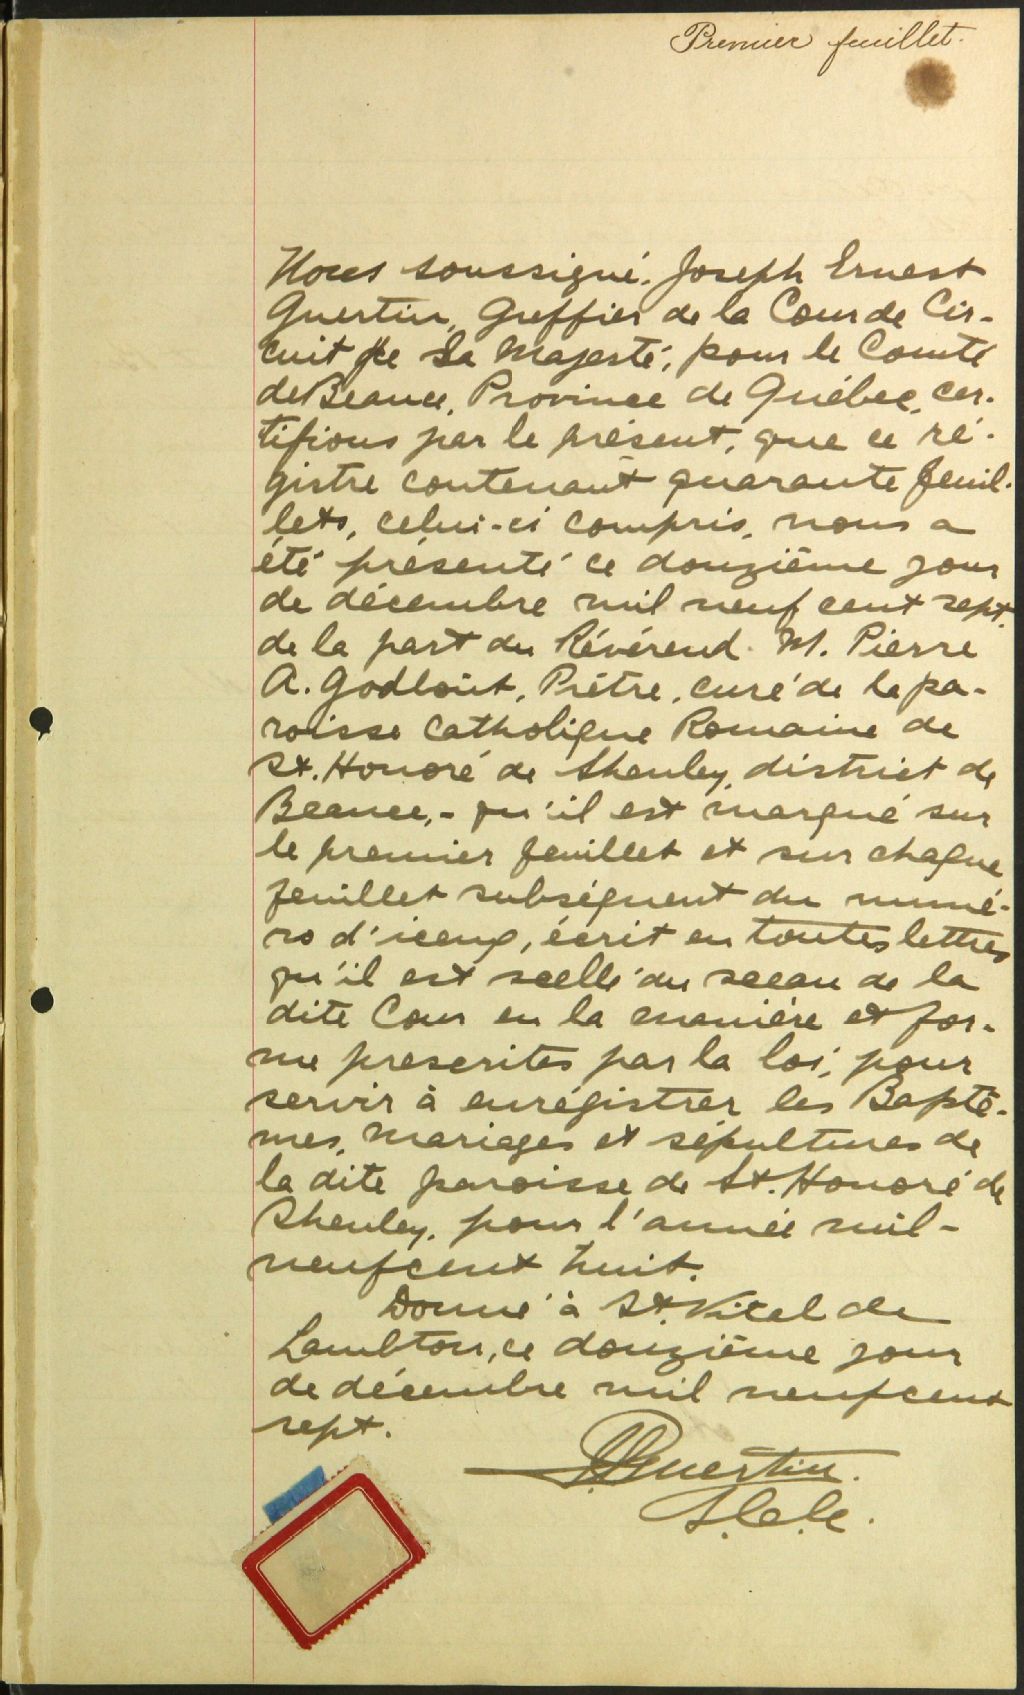 Premier feuillet.
Nous soussigné. Joseph Ernest
Guertin, Greffier de la Cour de Cir-
cuit de Sa Majesté, pour le Comté
de Beauce, Province de Québec, cer-
tifions par le présent, que ce ré-
gistre contenant quarante feuil-
lets, celui-ci compris, nous a
été présenté ce douzième jour
de décembre mil neuf cent sept.
de la part du Révérend M. Pierre
A. Godbout, Prêtre, curé de la pa-
roisse Catholique Romaine de
St. Honoré de Shenley, district de
Beauce,- qu'il est marqué sur
le premier feuillet et sur chaque
feuillet subséquent du numé-
ro d'iceux, écrit en toutes lettres
qu'il est scellé du sceau de la
dite Cour en la manière et for-
me prescrites par la loi, pour
servir à enrégistrer les Baptê-
mes, mariages et sépultures de
la dite paroisse de St. Honoré de
Shenley, pour l'année mil-
neufcent huit.
Donné à St. Vital de
Lambton, ce douzième jour
de décembre mil neufcent
sept.
Guertin.